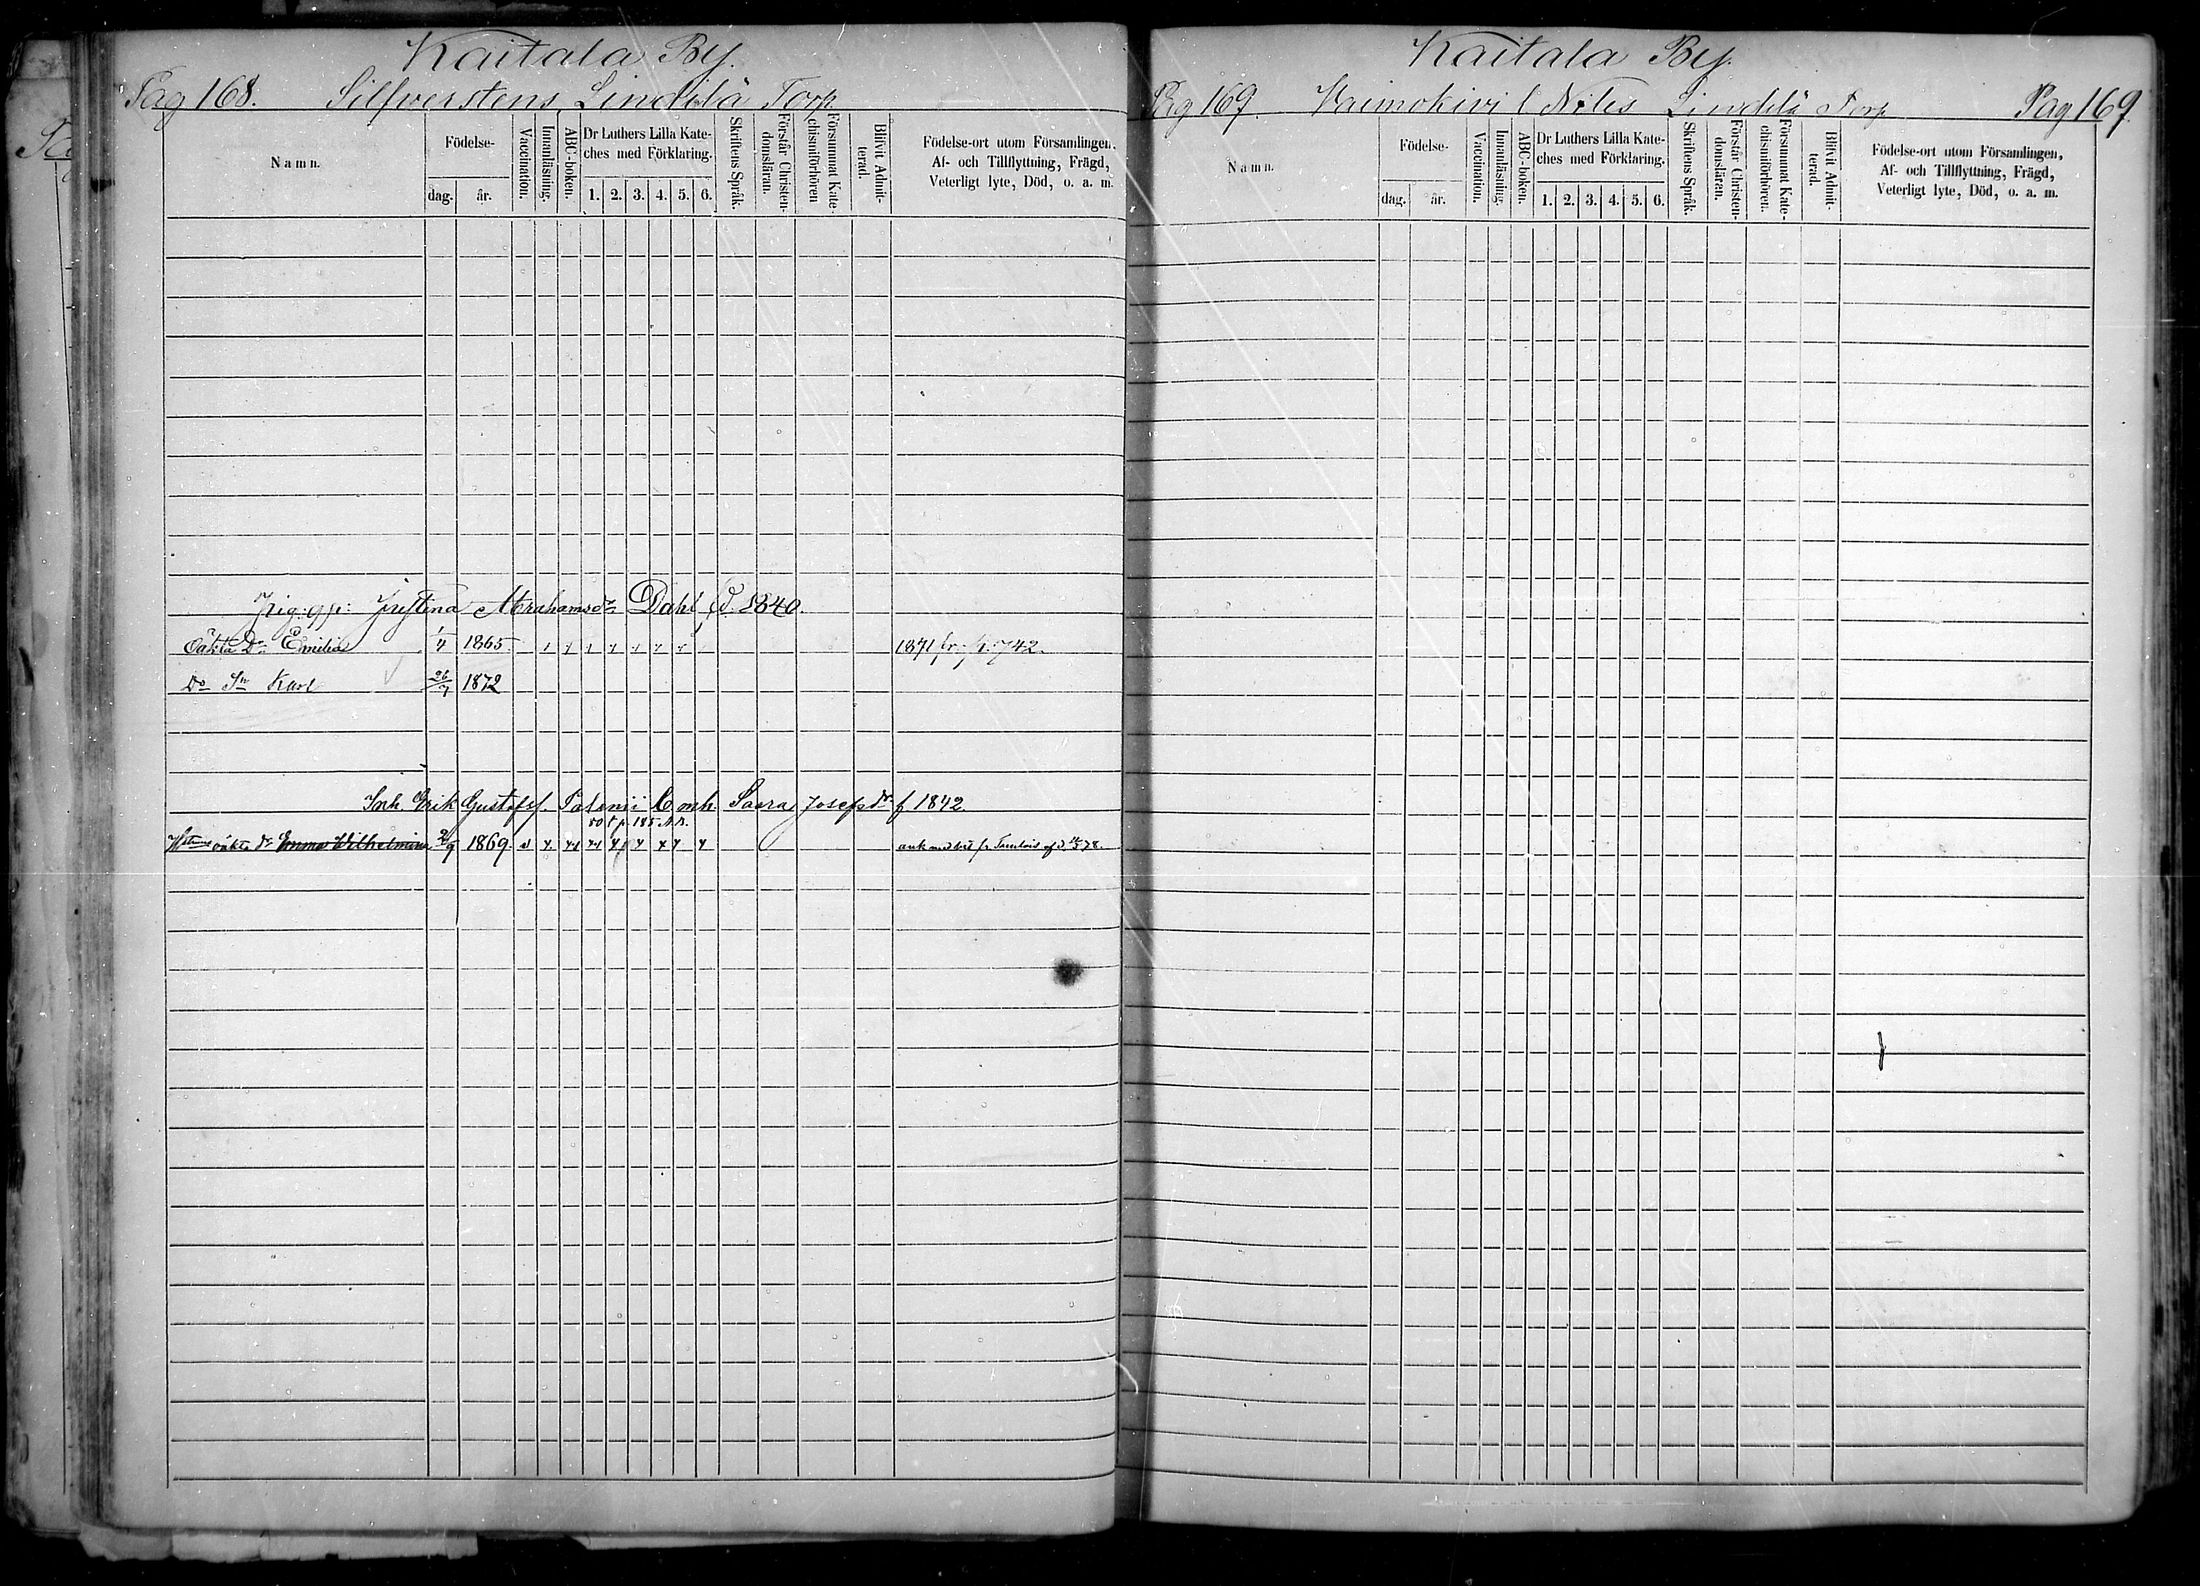 Kaitala By.
Pag 168. Silfverstens Lindilä Torp.
Namn.
Födelse-
dag. år.
Vaccination.
Innanläsning.
ABC-boken.
Dr Luthers Lilla Kate-
ches med Förklaring.
1. 2. 3. 4. 5. 6.
Skriftens Språk.
Förstår Christen-
domsläran.
Försummat Kate-
chismiförhören
Blifvit Admit-
terad.
Födelse-ort utom Församlingen,
Af- och Tillflyttning, Frägd,
Veterligt lyte, Död, o. a. m.
Justina Abrahamsdr Dahl, f. 1840.
Oäkta Dr Emilia 1865 1871 fr. p. 742.
Do Sn Karl 26/7 1872
Inh. Erik Gustafsf. Salenii Enk. Saara Josefsdr f 1842
oäkta dr Emma Wilhelmina 2/9 1869
Kaitala By.
Pag 169. Lindilä Torp Pag 169.
Namn.
Födelse-
dag. år.
Vaccination.
Innanläsning.
ABC-boken.
Dr Luthers Lilla Kate-
ches med Förklaring.
1. 2. 3. 4. 5. 6.
Skriftens Språk.
Förstår Christen-
domsläran.
Försummat Kate-
chismiförhören.
Blifvit Admit-
terad.
Födelse-ort utom Församlingen,
Af- och Tillflyttning, Frägd,
Veterligt lyte, Död, o. a. m.